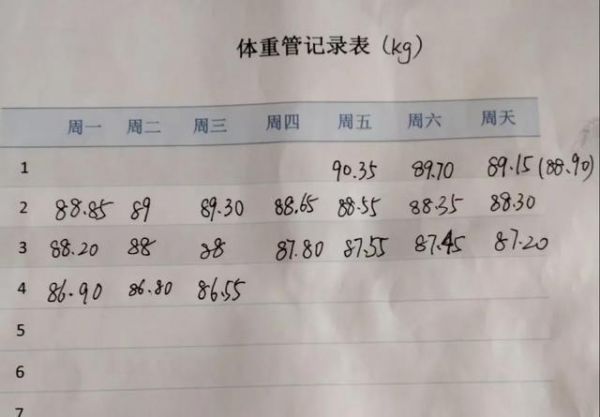 体重管记录表(kg)
周一 周二 周三 周四 周五 周六 周天
1 90.35 89.70 89.15(88.90)
2 88.85 89 89.30 88.65 88.55 88.35 88.30
3 88.20 88 88 87.80 87.55 87.45 87.20
4 86.90 86.80 86.55
5
6
7